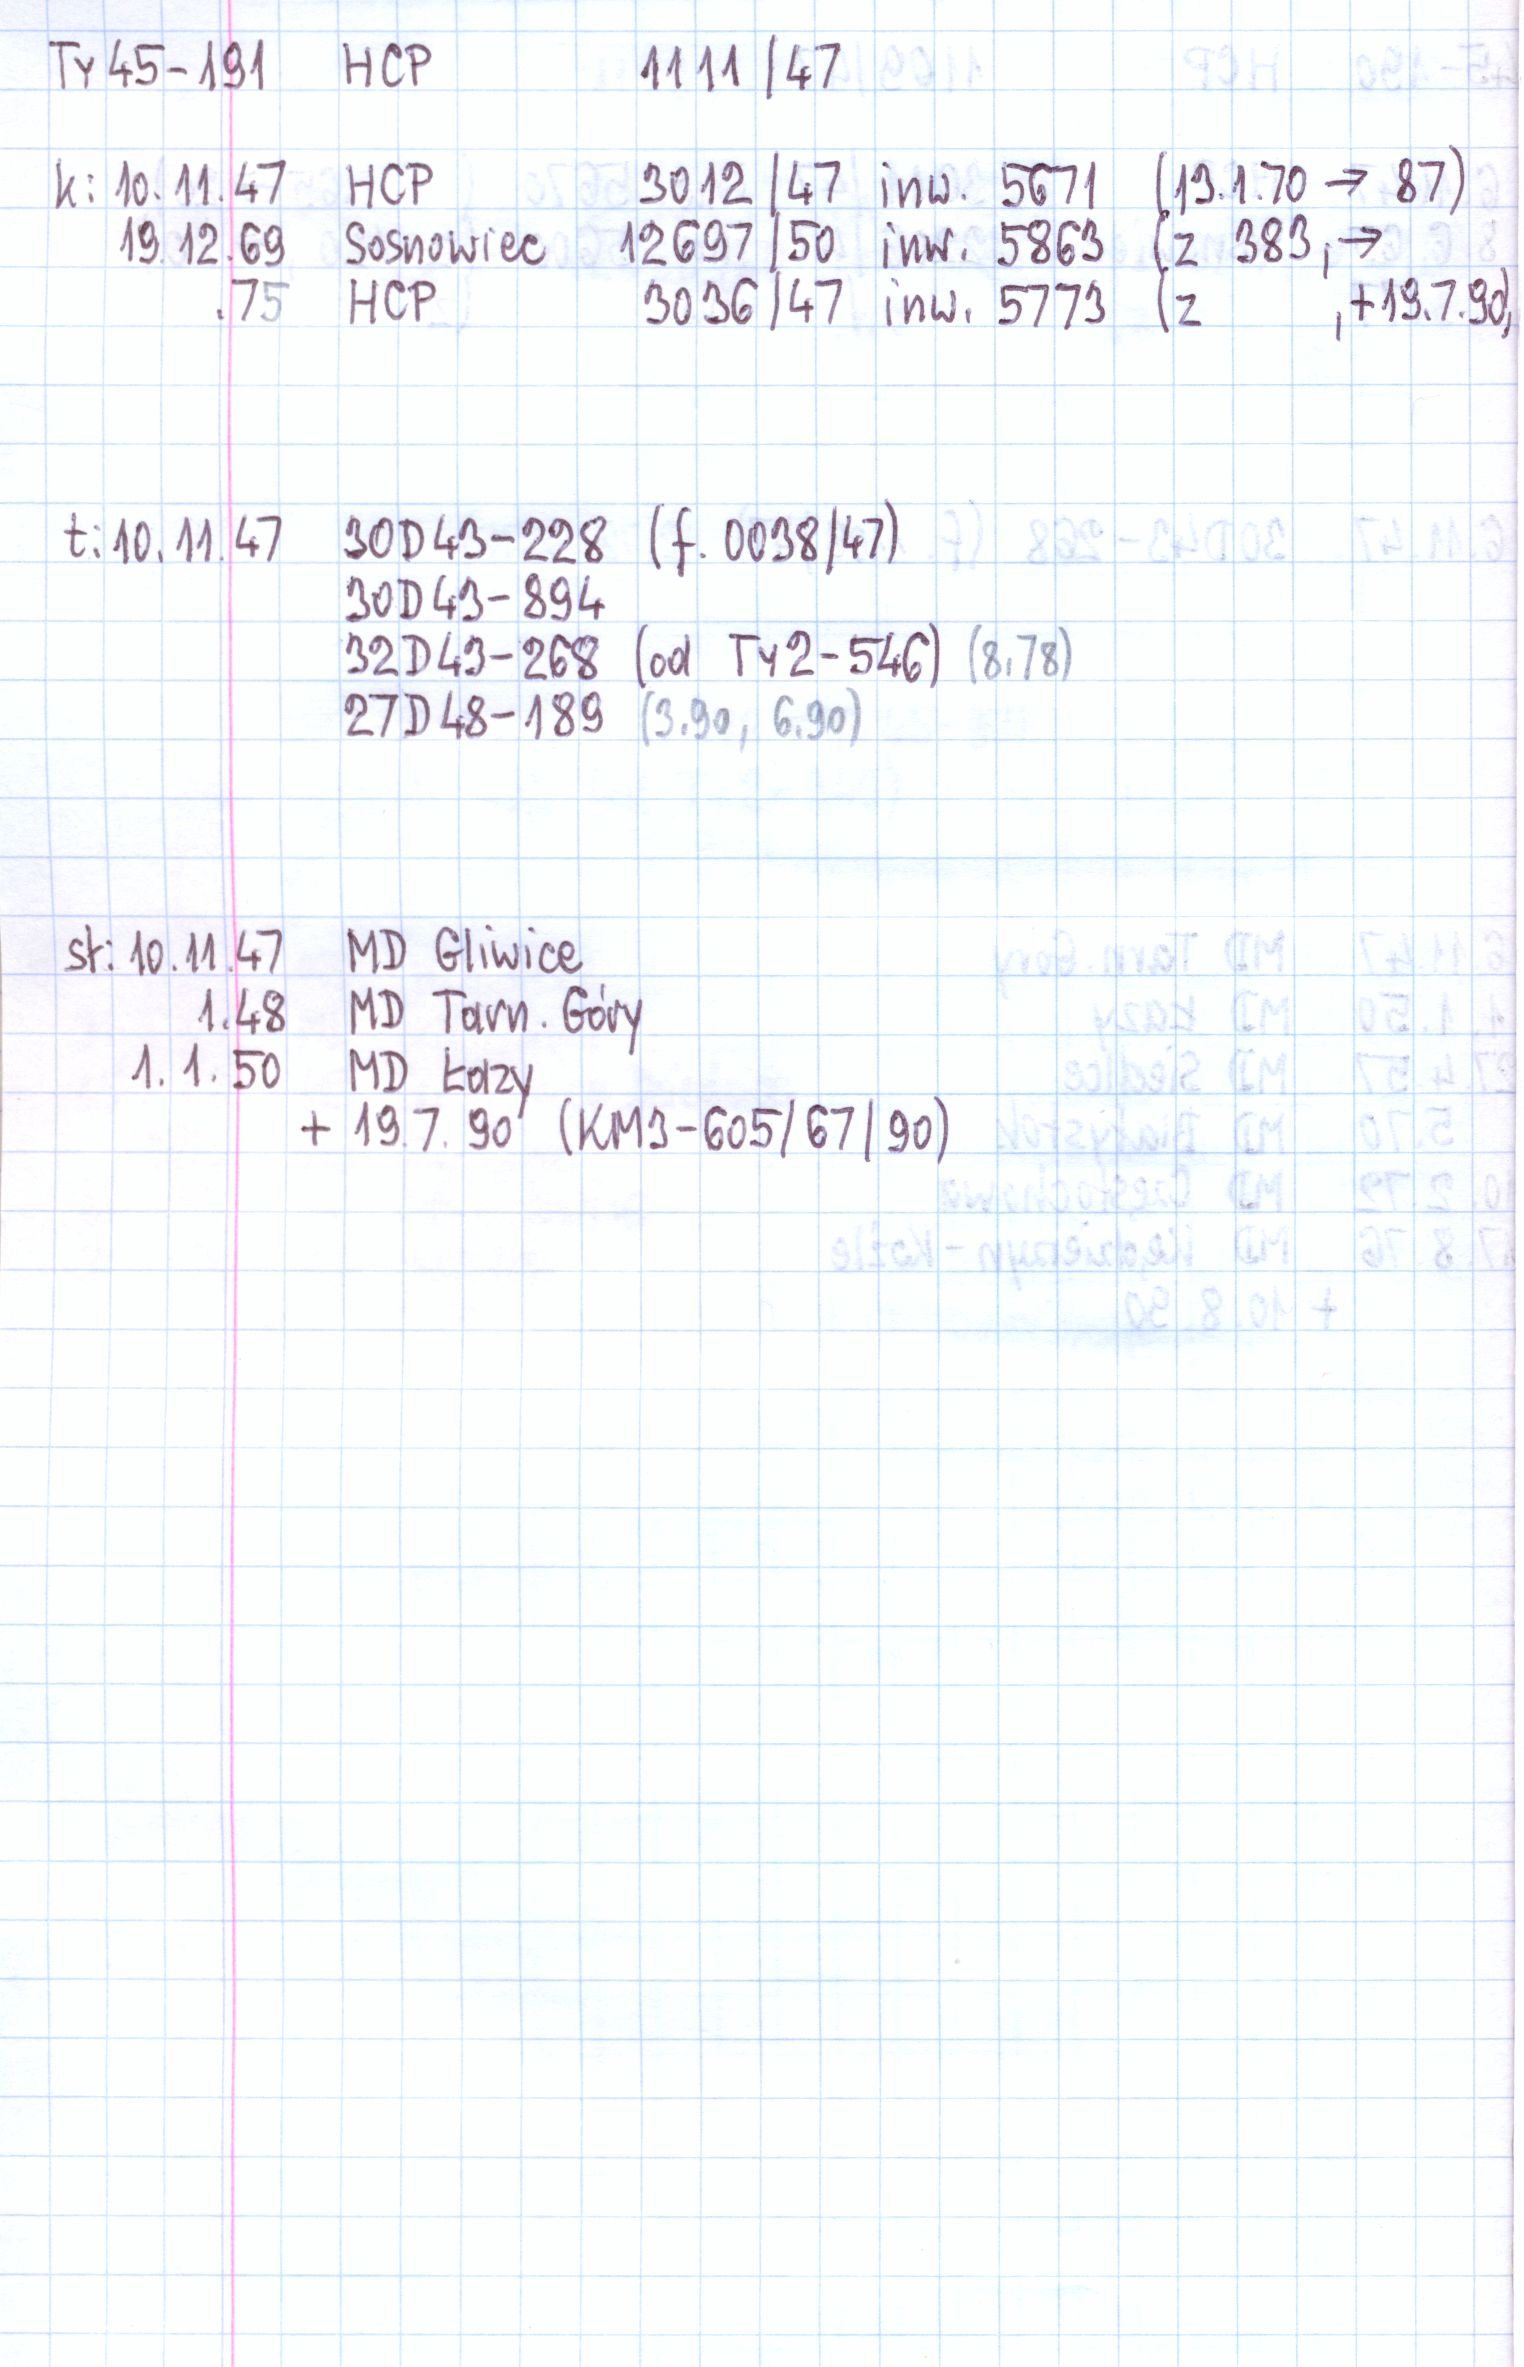 Ty45-191 HCP 1111/47
k: 10.11.47 HCP 3012/47 inw. 5671 (13.1.70 → 87)
19.12.69 Sosnowiec 12697/50 inw. 5863 (z 383, →
.75 HCP 3036/47 inw. 5773 (z ,+19.7.90)
t: 10.11.47 30D43-228 (f. 0038/47)
30D43-894
32D43-268 (od Ty2-546) (8.78)
27D48-189 (3.90, 6.90)
st: 10.11.47 MD Gliwice
1.48 MD Tarn. Góry
1.1.50 MD Łazy
+ 19.7.90 (KM3-605/67/90)